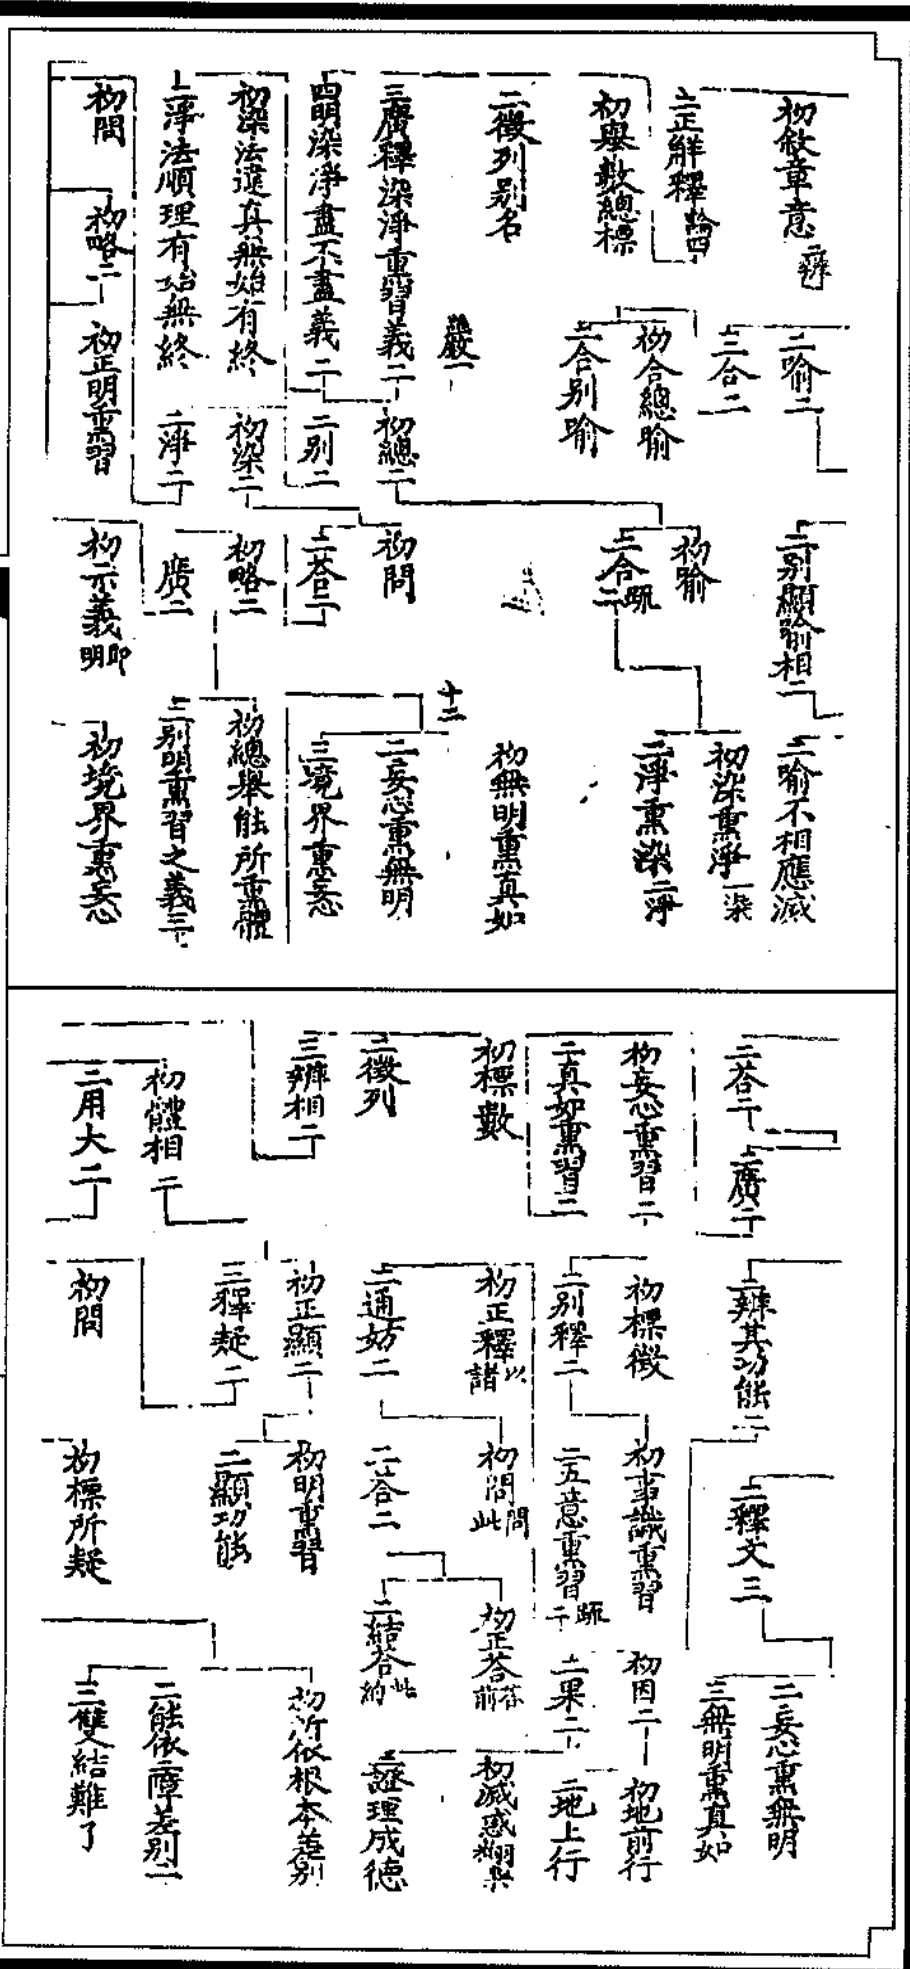 初敘章意
二正解釋
初舉數總標
二徵列別名
三廣釋染淨熏習義二
四明染淨盡不盡義二
初染法違真無始有終
二淨法順理有始無終
初問
初略二
二喻二
三合二
初合總喻
二合別喻
初總二
二別二
初染二
二淨二
初正明熏習
二別顯喻相二
初喻
二合二疏
初問
二荅二
初略二
廣二
初示義明即
二喻不相應滅
初染熏淨一染
二淨熏染二淨
初無明熏真如
十二
二妄心熏無明
三境界熏妄心
初總舉能所熏體
二別明熏習之義三
初境界熏妄心
二荅二
二廣二
初妄心熏習二
二真如熏習三
初標數
二徵列
三辨相二
初體相二
二用大二
二辨其功能二
初標徵
二別釋二
初正釋諸以
二通妨二
初正顯二
二釋疑二
初問
二釋文三
初事識熏習
二五意熏習二疏
初問此問
二荅二
初明熏習
二顯功能
初標所疑
二妄心熏無明
三無明熏真如
初因二
二果二
初正荅前荅
二結荅約此
初地前行
二地上行
初滅惑
二證理成德
初所依根本差別
二能依二障差別二
三雙結難了